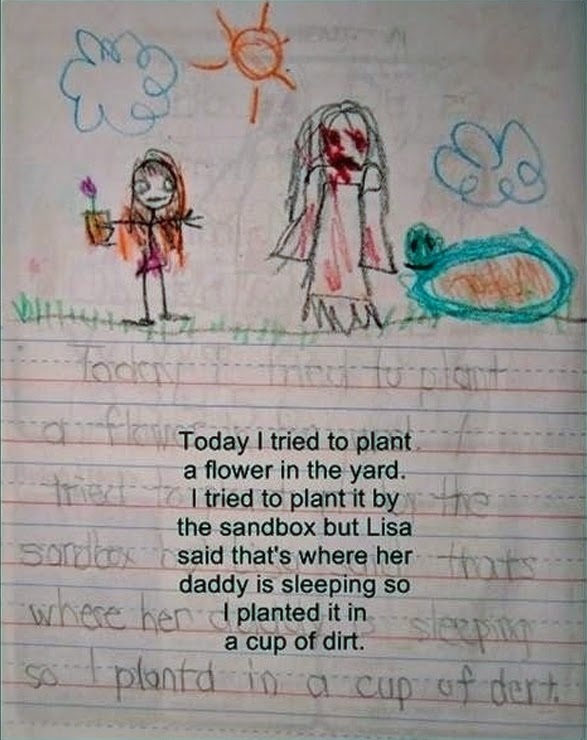 Today I tried to plant
a
tried to the
sandbox thats
where her sleeping
so I plantd in a cup of dert.
Today I tried to plant
a flower in the yard.
I tried to plant it by
the sandbox but Lisa
said that's where her
daddy is sleeping so
I planted it in
a cup of dirt.